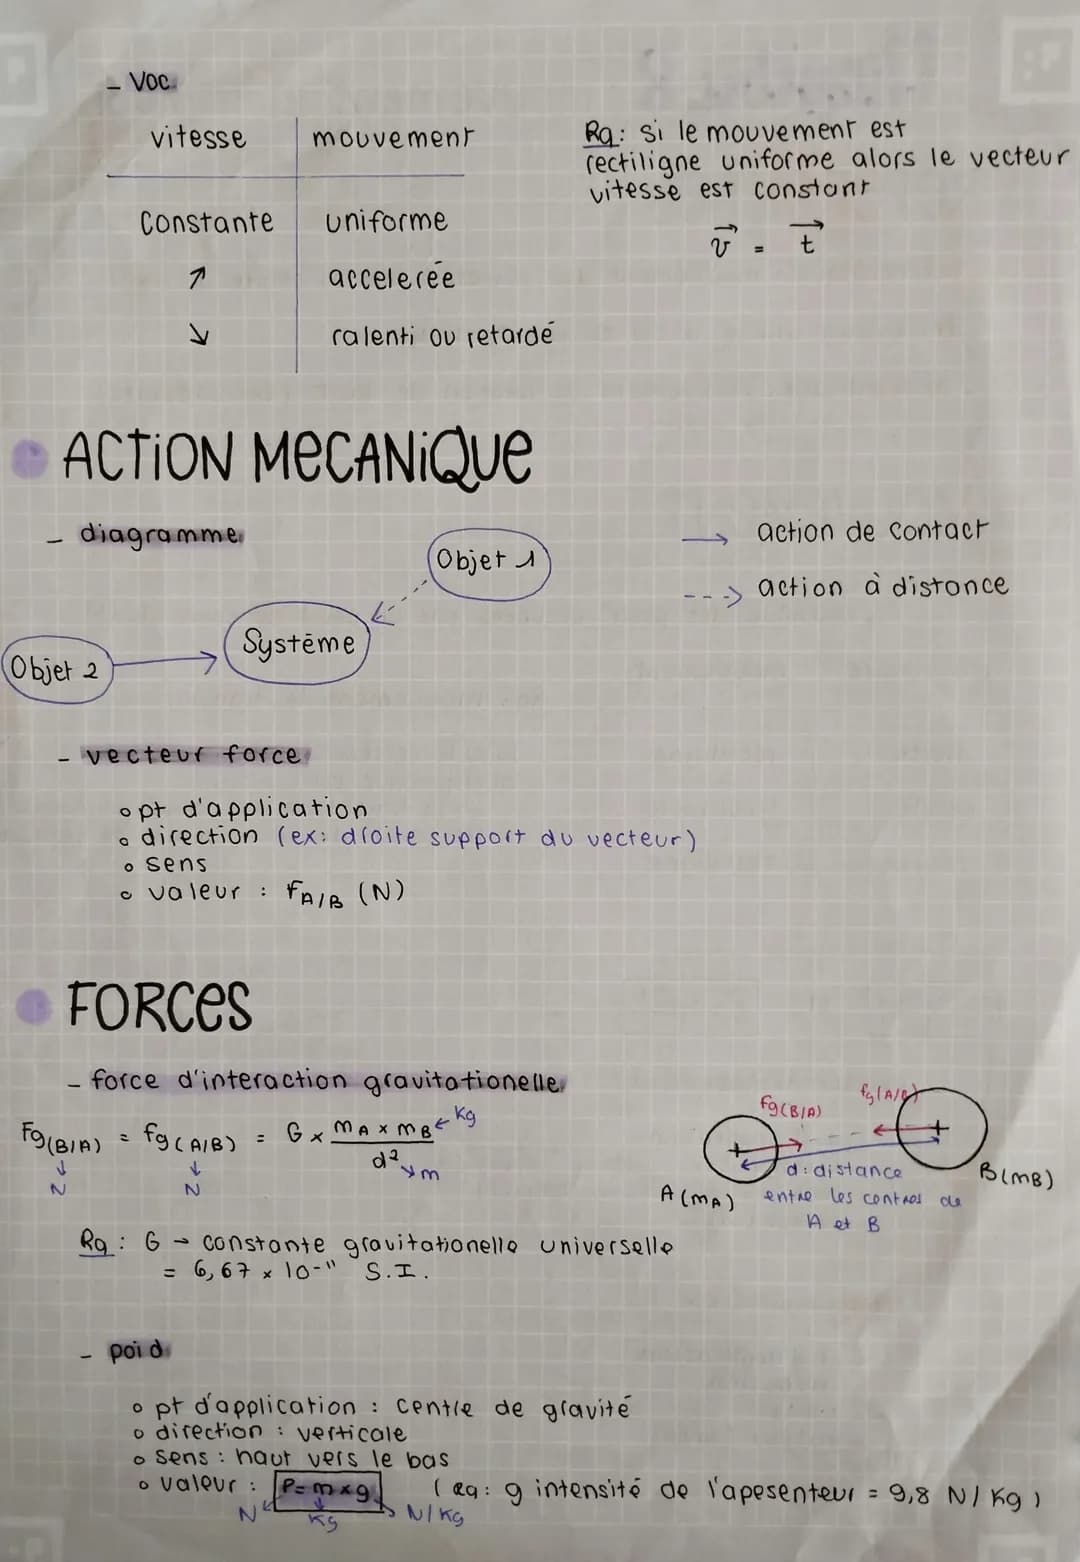 - Voc.
vitesse mouvement
Constante uniforme
↗ accelerée
↘ ralenti ou retardé
Rq: si le mouvement est
rectiligne uniforme alors le vecteur
vitesse est constant
v⃗ = t⃗
ACTION MECANIQUE
- diagramme
Objet 1
Système
Objet 2
→ action de contact
---> action à distance
- vecteur force
o pt d'application
o direction (ex: droite support du vecteur)
o sens
o valeur : FA/B (N)
FORCES
- force d'interaction gravitationelle
Fg(B/A) = fg(A/B) = G × mA × mB / d² ← Kg
↓ N ↓ N ↘ m
Fg(B/A) fg(A/B)
d: distance
entre les centres de
A et B
A (mA)
B (mB)
Rq: G → constante gravitationelle universelle
= 6,67 × 10-¹¹ S.I.
- poid
o pt d'application : centre de gravité
o direction : verticale
o sens : haut vers le bas
o valeur : P= m×g (Rq: g intensité de l'apesenteur = 9,8 N/Kg)
N Kg N/Kg